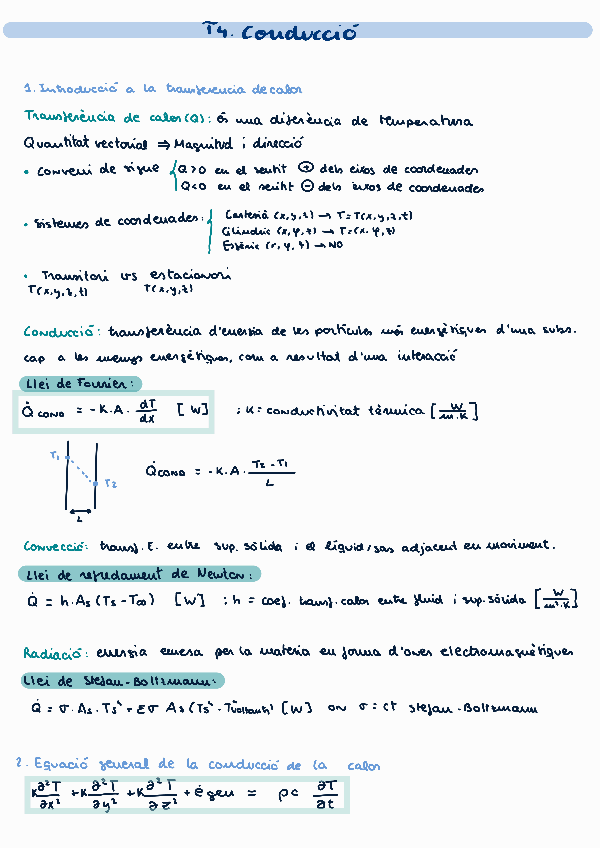 T4. Conducció
1. Introducció a la transferencia de calor
Transferència de calor (Q): és una diferència de temperatura
Quantitat vectorial ⇒ Magnitud i direcció
• Conveni de signe { Q>0 en el sentit ⊕ dels eixos de coordenades
Q<0 en el sentit ⊖ dels eixos de coordenades
• Sistemes de coordenades: { Cartesià (x,y,z) → T=T(x,y,z,t)
Cilíndric (x,φ,z) → T=(x,φ,z)
Esfèric (r,φ,z) → NO
• Transitori vs estacionari
T(x,y,z,t) T(x,y,z)
Conducció: transferència d'energia de les partícules més energètiques d'una subs.
cap a les menys energètiques, com a resultat d'una interacció
Llei de Fourier:
Q̇ COND = -K·A· dT/dx [W] ; K = conductivitat tèrmica [W/m·K]
T1 T2 L
Q̇ COND = -K·A· (T2-T1)/L
Convecció: transf. E. entre sup. sòlida i el líquid/gas adjacent en moviment.
Llei de refredament de Newton:
Q̇ = h·As (Ts-T∞) [W] ; h = coef. transf. calor entre fluid i sup. sòlida [W/m²·K]
Radiació: energia emesa per la matèria en forma d'ones electromagnètiques
Llei de Stefan-Boltzmann:
Q̇ = σ·As·Ts⁴ = εσ As (Ts⁴ - T⁴voltants) [W] on σ = ct Stefan-Boltzmann
2. Equació general de la conducció de la calor
K ∂²T/∂x² + K ∂²T/∂y² + K ∂²T/∂z² + ė gen = ρc ∂T/∂t